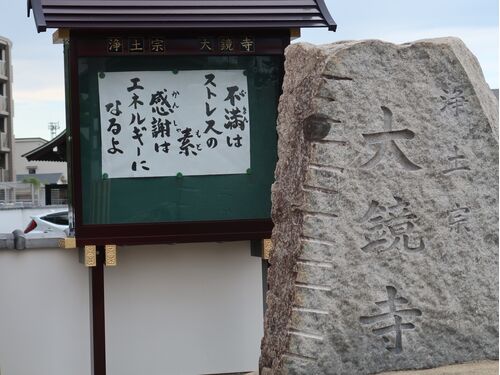 浄土宗 大鏡寺
不満は
ストレスの
素
感謝は
エネルギーに
なるよ
ふまん
もと
かんしゃ
浄土宗
大鏡寺